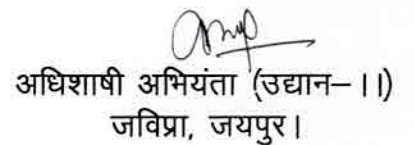 अधिशाषी अभियंता (उद्यान–।।)
जविप्रा, जयपुर।